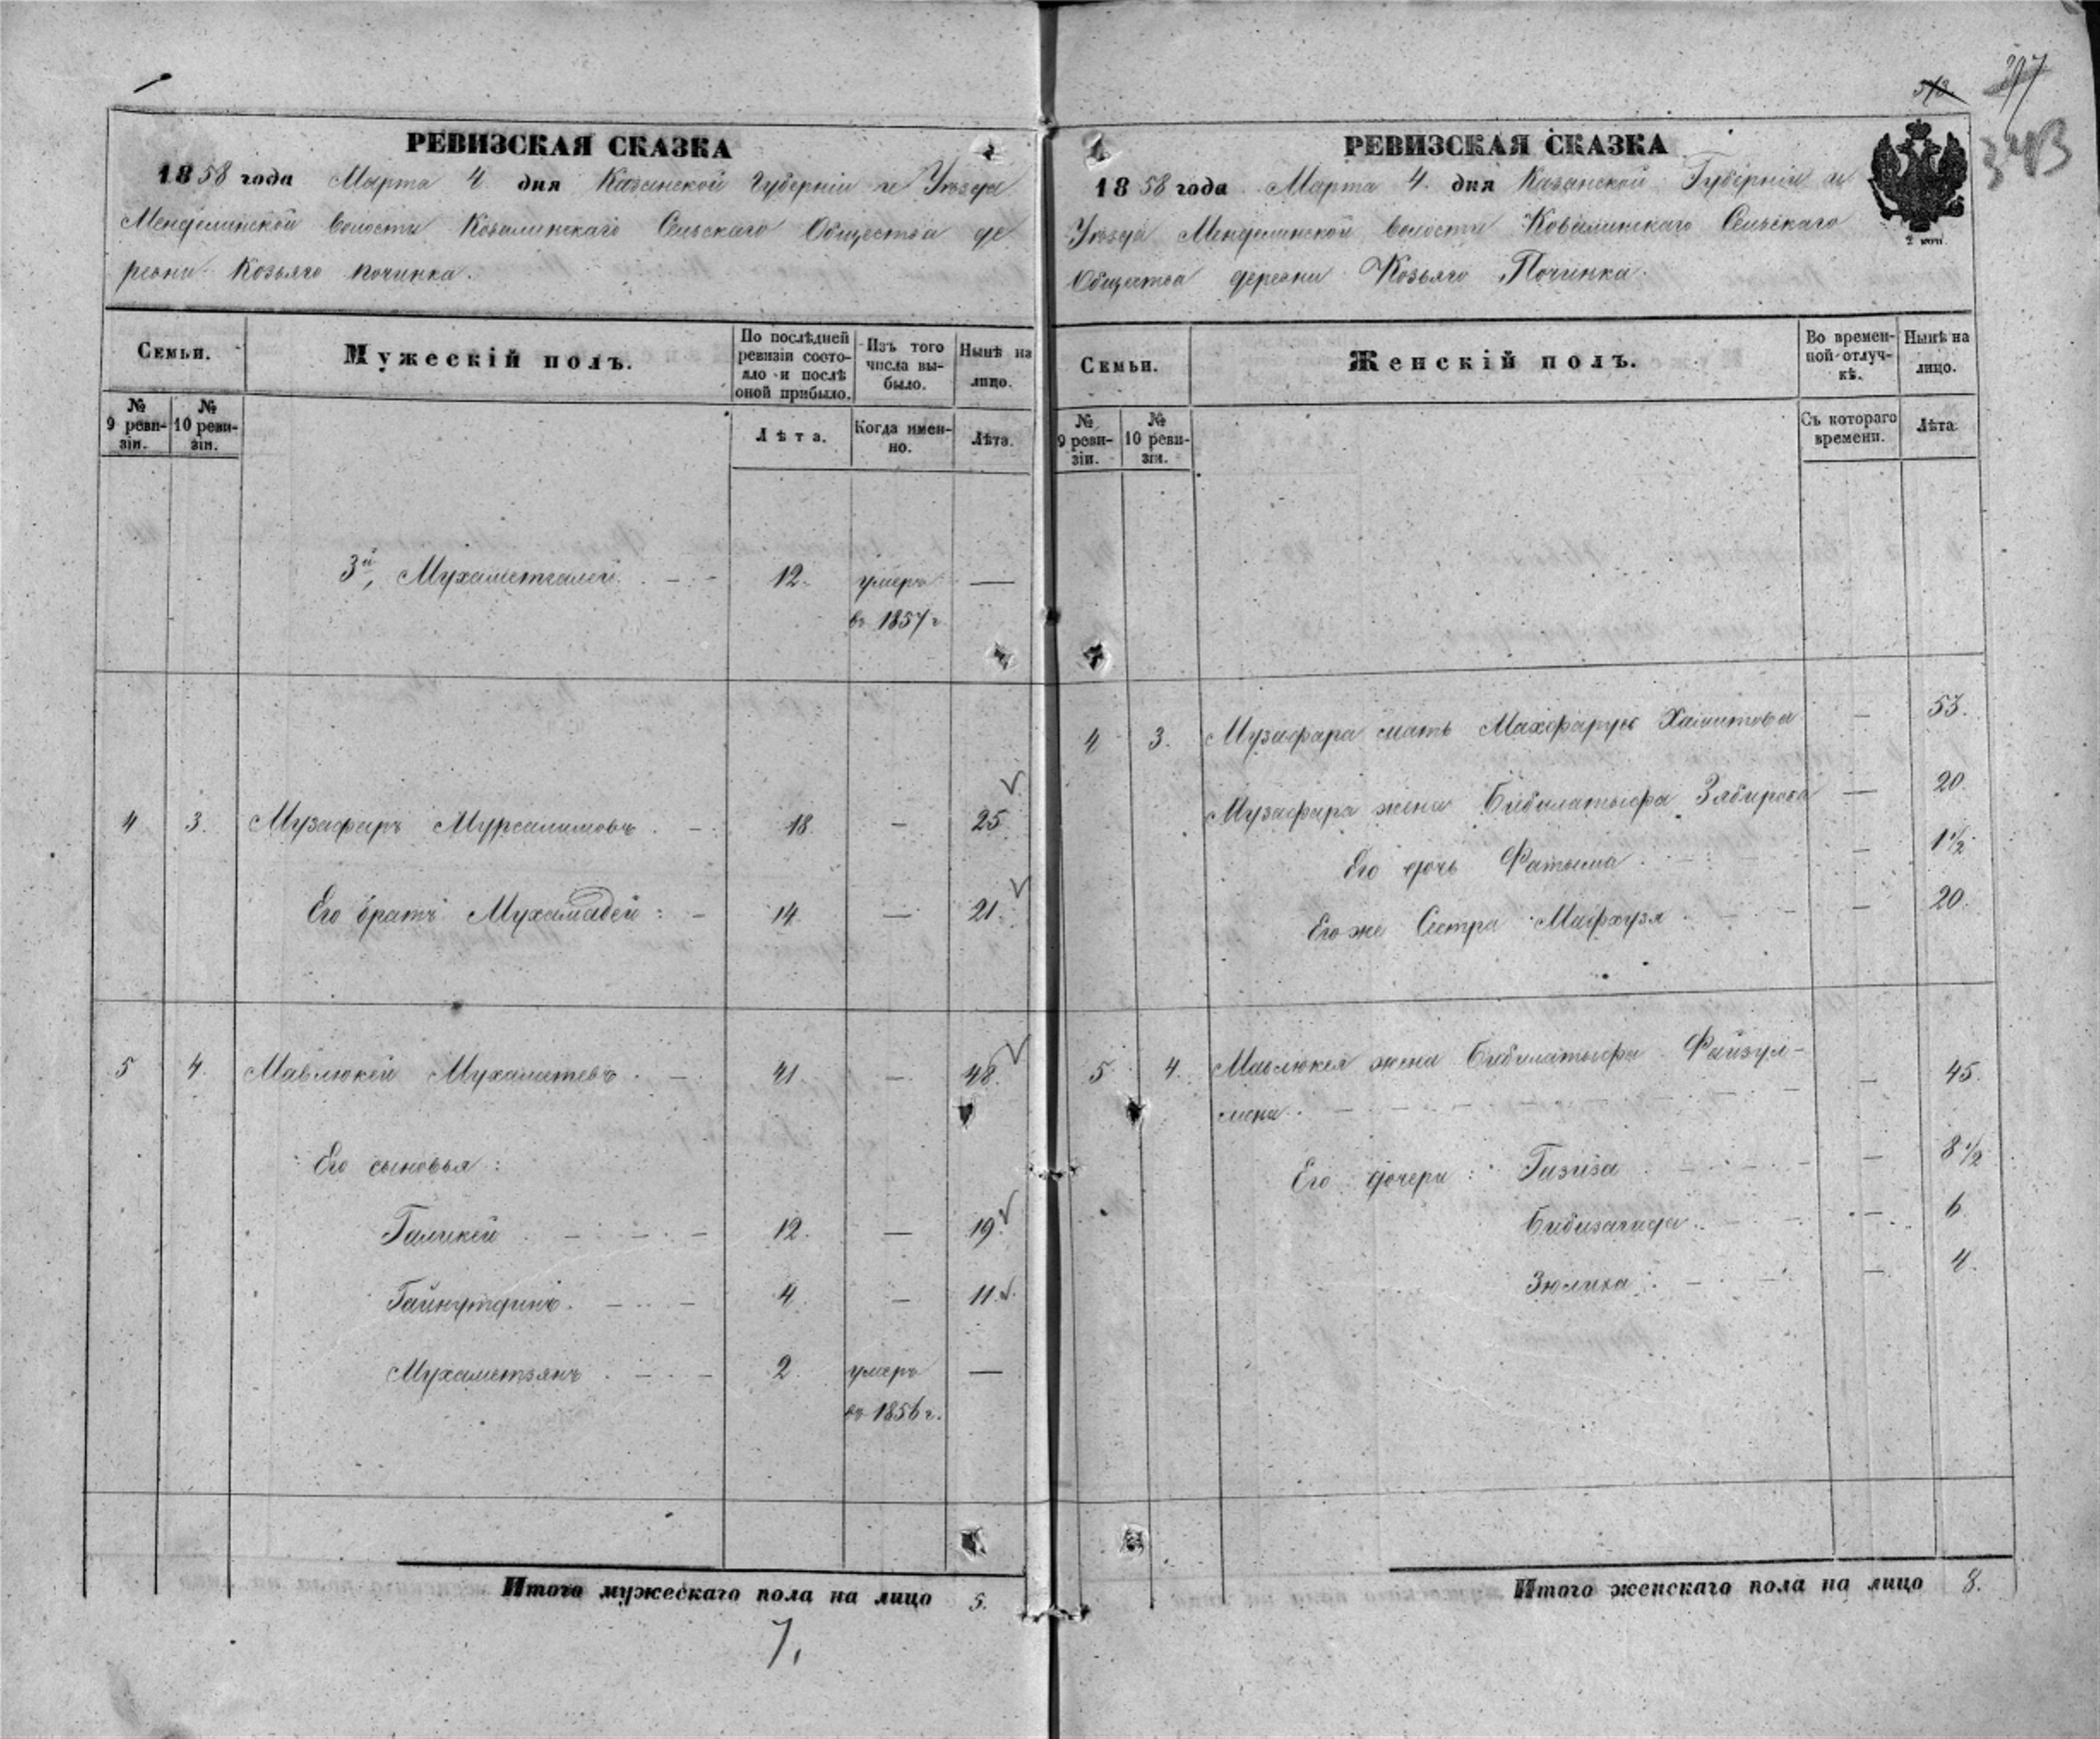 297
573.
343
РЕВИЗСКАЯ СКАЗКА
1858 года Марта 4 дня Казанской Губерніи того же Уѣзда
Менделинской Волости Ковалинскаго Сельскаго Общества де
ревни Козьяго починка.
Семьи.
Мужескій полъ.
По послѣдней ревизіи состояло и послѣ оной прибыло.
Изъ того числа выбыло.
Нынѣ на лицо.
№ 9 ревизіи.
№ 10 ревизіи.
Лѣта.
Когда именно.
Лѣта.
3й, Мухаметгалей. 12. умеръ —
въ 1857 г
4 3. Музафаръ Мурсалимовъ. 18. — 25.
Его братъ Мухамадей: 14. — 21.
5 4. Мавлюкей Мухаметевъ. 41. — 48.
Его сыновья:
Галикей 12. — 19.
Гайнутдинъ. 4. — 11.
Мухаметзянъ 2. умеръ —
въ 1856 г.
Итого мужескаго пола на лицо 5.
7,
РЕВИЗСКАЯ СКАЗКА
1858 года Марта 4. дня Казанской Губерніи
Уѣзда Менделинской волости Ковалинскаго Сельскаго
Общества деревни Козьяго Починка.
2 коп.
Семьи.
Женскій полъ.
Во временной отлучкѣ.
Нынѣ на лицо.
№ 9 ревизіи.
№ 10 ревизіи.
Съ котораго времени.
Лѣта.
4 3. Музафара мать Махфаруя Хамитова — 53.
Музафара жена Бибилатыфа Зябирова — 20.
Его дочь Фатыма. — 1½
Его же Сестра Мафхузя — 20.
5 4. Мавлюкея жена Бибилатыфа Файзул-
лина. — 45.
Его дочери: Газиза — 8½
Бибизагида. — 6
Зюлиха. — 4.
Итого женскаго пола на лицо 8.